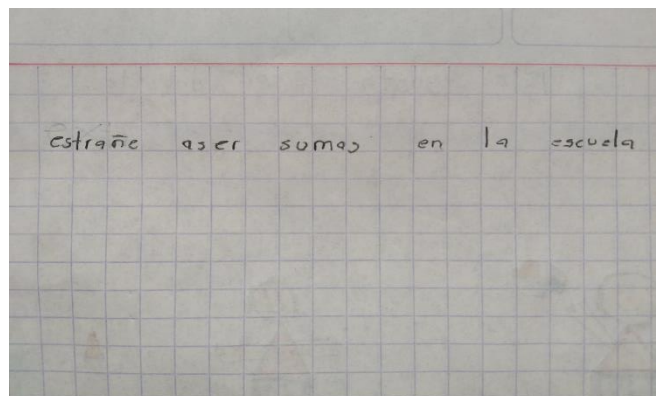 estrañe aser sumas en la escuela